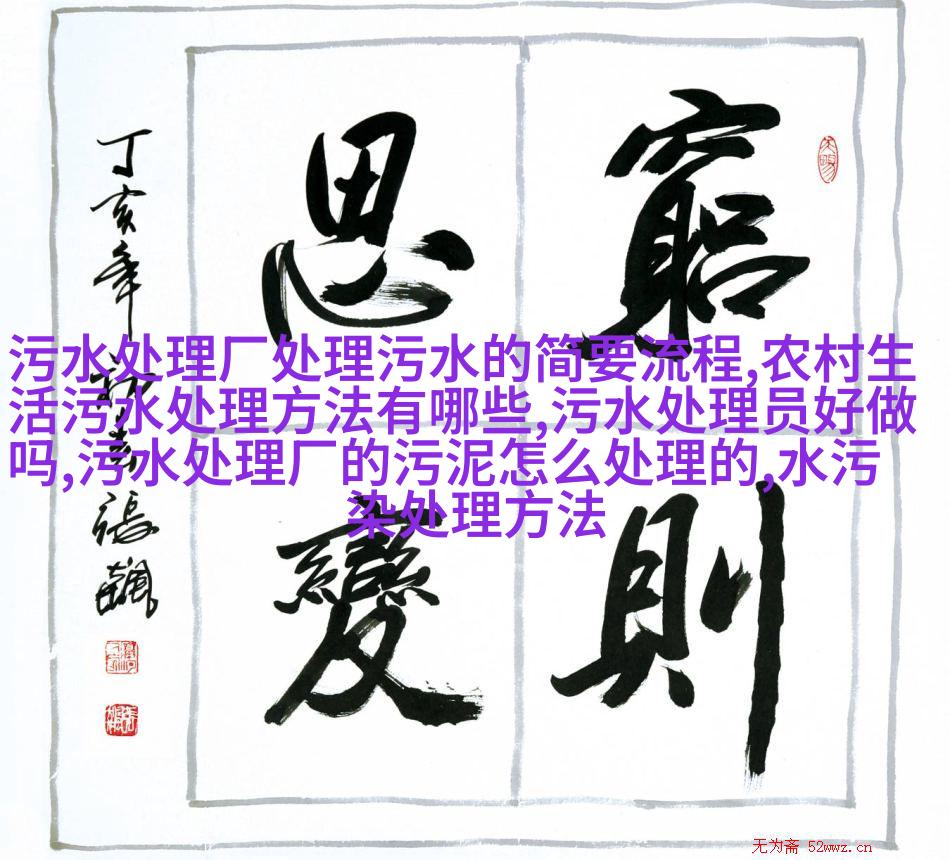 窮則
思變
丁亥年
張飆
污水处理厂处理污水的简要流程,农村生
活污水处理方法有哪些,污水处理员好做
吗,污水处理厂的污泥怎么处理的,水污
染处理方法
无为斋 52wwz.cn